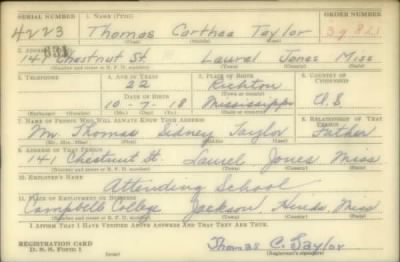 SERIAL NUMBER 1. NAME (Print) ORDER NUMBER
4223 Thomas Carthea Taylor 3982
(First) (Middle) (Last)
2. ADDRESS
331
141 Chestnut St. Laurel Jones Miss
(Number and street or R. F. D. number) (Town) (County) (State)
3. TELEPHONE 4. AGE IN YEARS 5. PLACE OF BIRTH 6. COUNTRY OF CITIZENSHIP
22 Richton
DATE OF BIRTH (Town or county)
10-7-18 Mississippi U.S.
(Exchange) (Number) (Mo.) (Day) (Yr.) (State or country)
7. NAME OF PERSON WHO WILL ALWAYS KNOW YOUR ADDRESS 8. RELATIONSHIP OF THAT PERSON
Mr. Thomas Sidney Taylor Father
(Mr., Mrs., Miss) (First) (Middle) (Last)
9. ADDRESS OF THAT PERSON
141 Chestnut St. Laurel Jones Miss.
(Number and street or R. F. D. number) (Town) (County) (State)
10. EMPLOYER'S NAME
Attending School
11. PLACE OF EMPLOYMENT OR BUSINESS
Campbell College Jackson, Hinds, Miss
(Number and street or R. F. D. number) (Town) (County) (State)
I AFFIRM THAT I HAVE VERIFIED ABOVE ANSWERS AND THAT THEY ARE TRUE.
REGISTRATION CARD Thomas C. Taylor
D. S. S. FORM 1 (Registrant's signature)